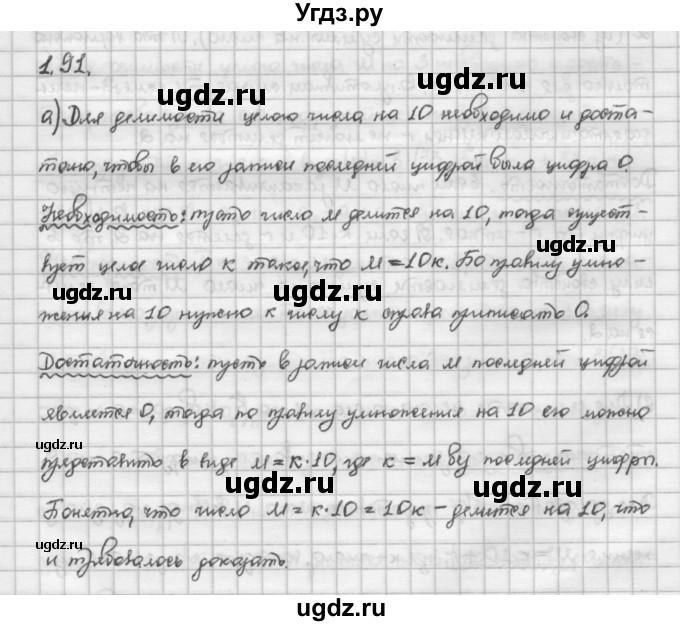 Угдз.ру
1.91.
а) Для делимости целого числа на 10 необходимо и доста-
точно, чтобы в его записи последней цифрой была цифра 0.
Необходимость: пусть число м делится на 10, тогда сущест-
вует целое число к такое, что м = 10к. По правилу умно-
жения на 10 нужно к числу к справа приписать 0.
Достаточность: пусть в записи числа м последней цифрой
является 0, тогда по правилу умножения на 10 его можно
представить в виде м = к·10, где к = м без последней цифры.
Понятно, что число м = к·10 = 10к – делится на 10, что
и требовалось доказать.
ugdz.ru
ugdz.ru
ugdz.ru
ugdz.ru
ugdz.ru
ugdz.ru
ugdz.ru
ugdz.ru
ugdz.ru
ugdz.ru
ugdz.ru
ugdz.ru